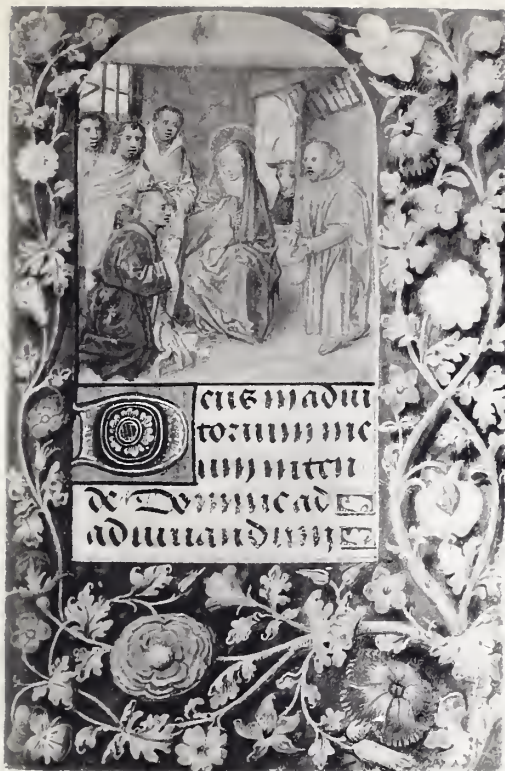 Deus in adiu
torium me
um inten
de Domine ad
adiuuandum